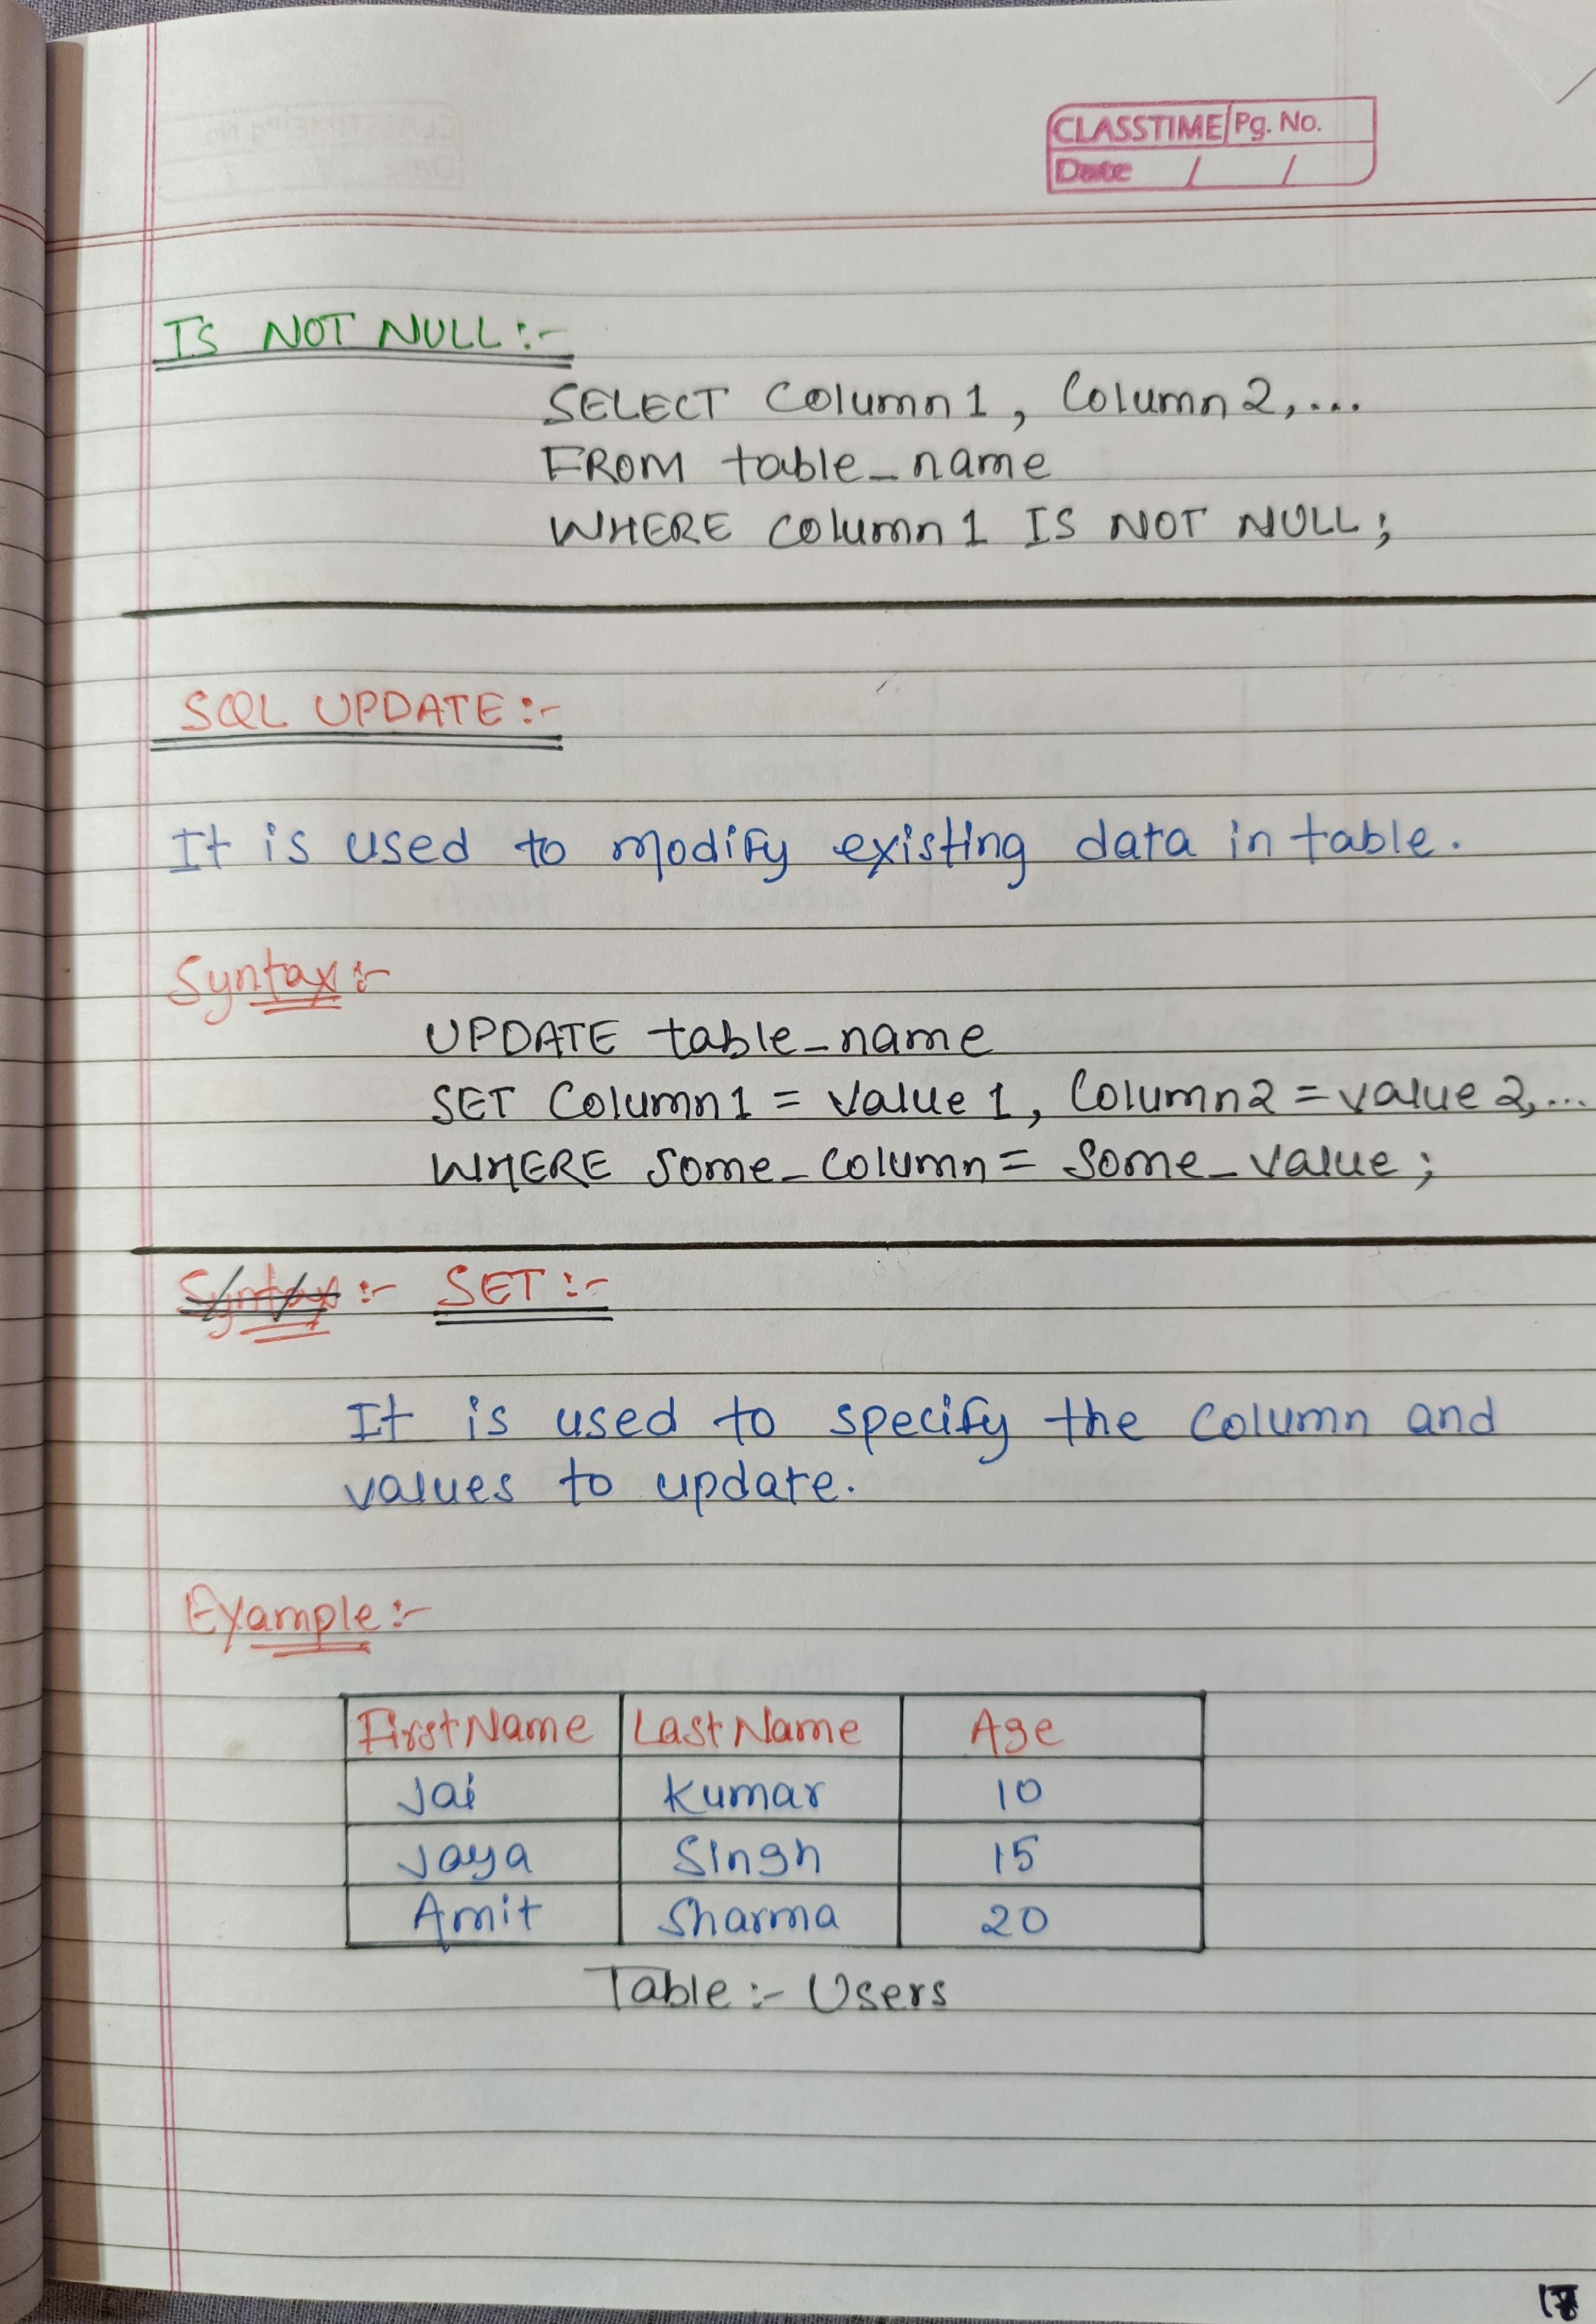 CLASSTIME Pg. No.
Date / /
IS NOT NULL :-
SELECT Column1, Column2,...
FROM table_name
WHERE Column1 IS NOT NULL;
SQL UPDATE :-
It is used to modify existing data in table.
Syntax :-
UPDATE table_name
SET Column1 = Value1, Column2 = value2,...
WHERE Some_Column = Some_Value;
Syntax :- SET :-
It is used to specify the Column and
values to update.
Example :-
FirstName LastName Age
Jai Kumar 10
Jaya Singh 15
Amit Sharma 20
Table :- Users